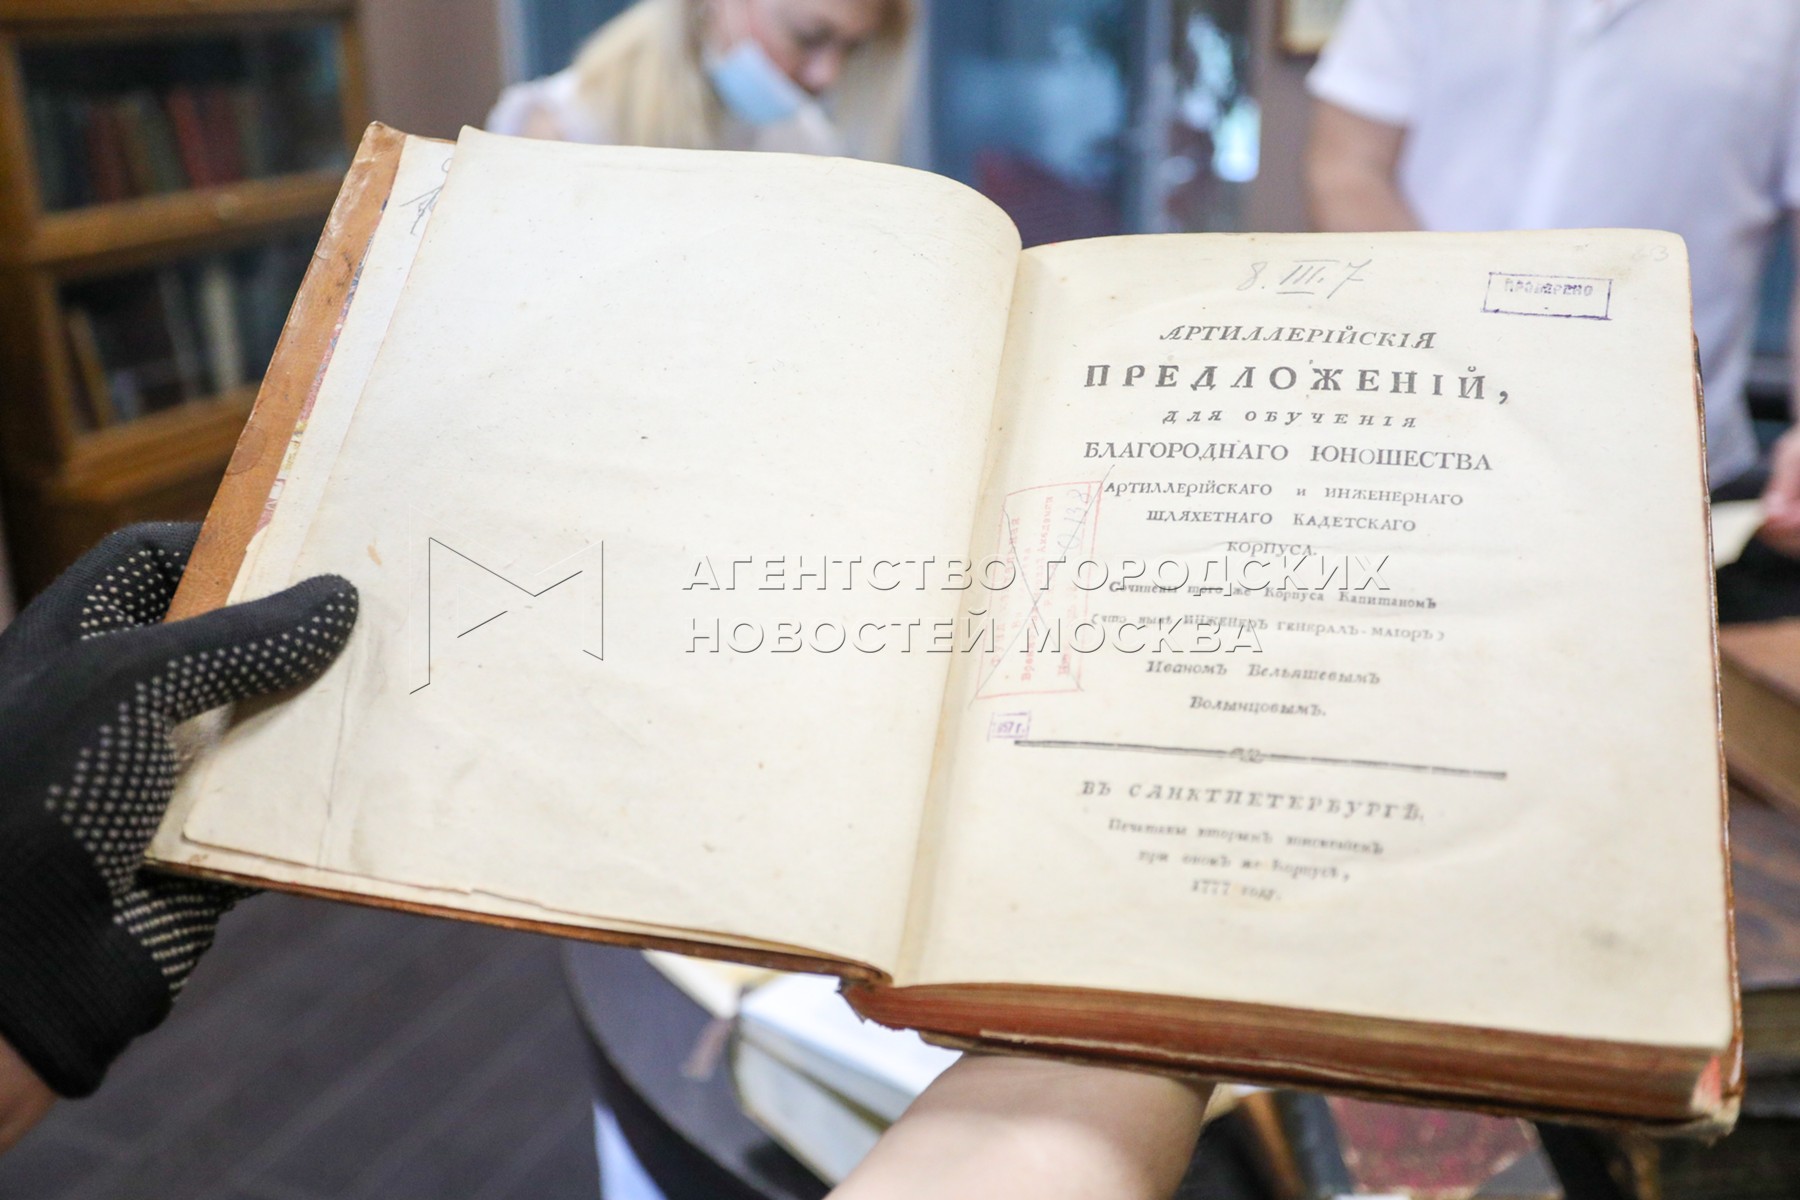 8. III. 7
ПРОВЕРЕНО
АРТИЛЛЕРІЙСКІЯ
ПРЕДЛОЖЕНІЙ,
ДЛЯ ОБУЧЕНІЯ
БЛАГОРОДНАГО ЮНОШЕСТВА
АРТИЛЛЕРІЙСКАГО И ИНЖЕНЕРНАГО
ШЛЯХЕТНАГО КАДЕТСКАГО
КОРПУСА.
Сочинены того же Корпуса Капитаномъ
(что нынѣ ИНЖЕНЕРЪ ГЕНЕРАЛЪ-МАІОРЪ)
Иваномъ Вельяшевымъ
Волынцовымъ.
ВЪ САНКТПЕТЕРБУРГѢ.
Печатаны вторымъ тисненіемъ
при ономъ же Корпусѣ,
1777 году.
АГЕНТСТВО ГОРОДСКИХ
НОВОСТЕЙ МОСКВА